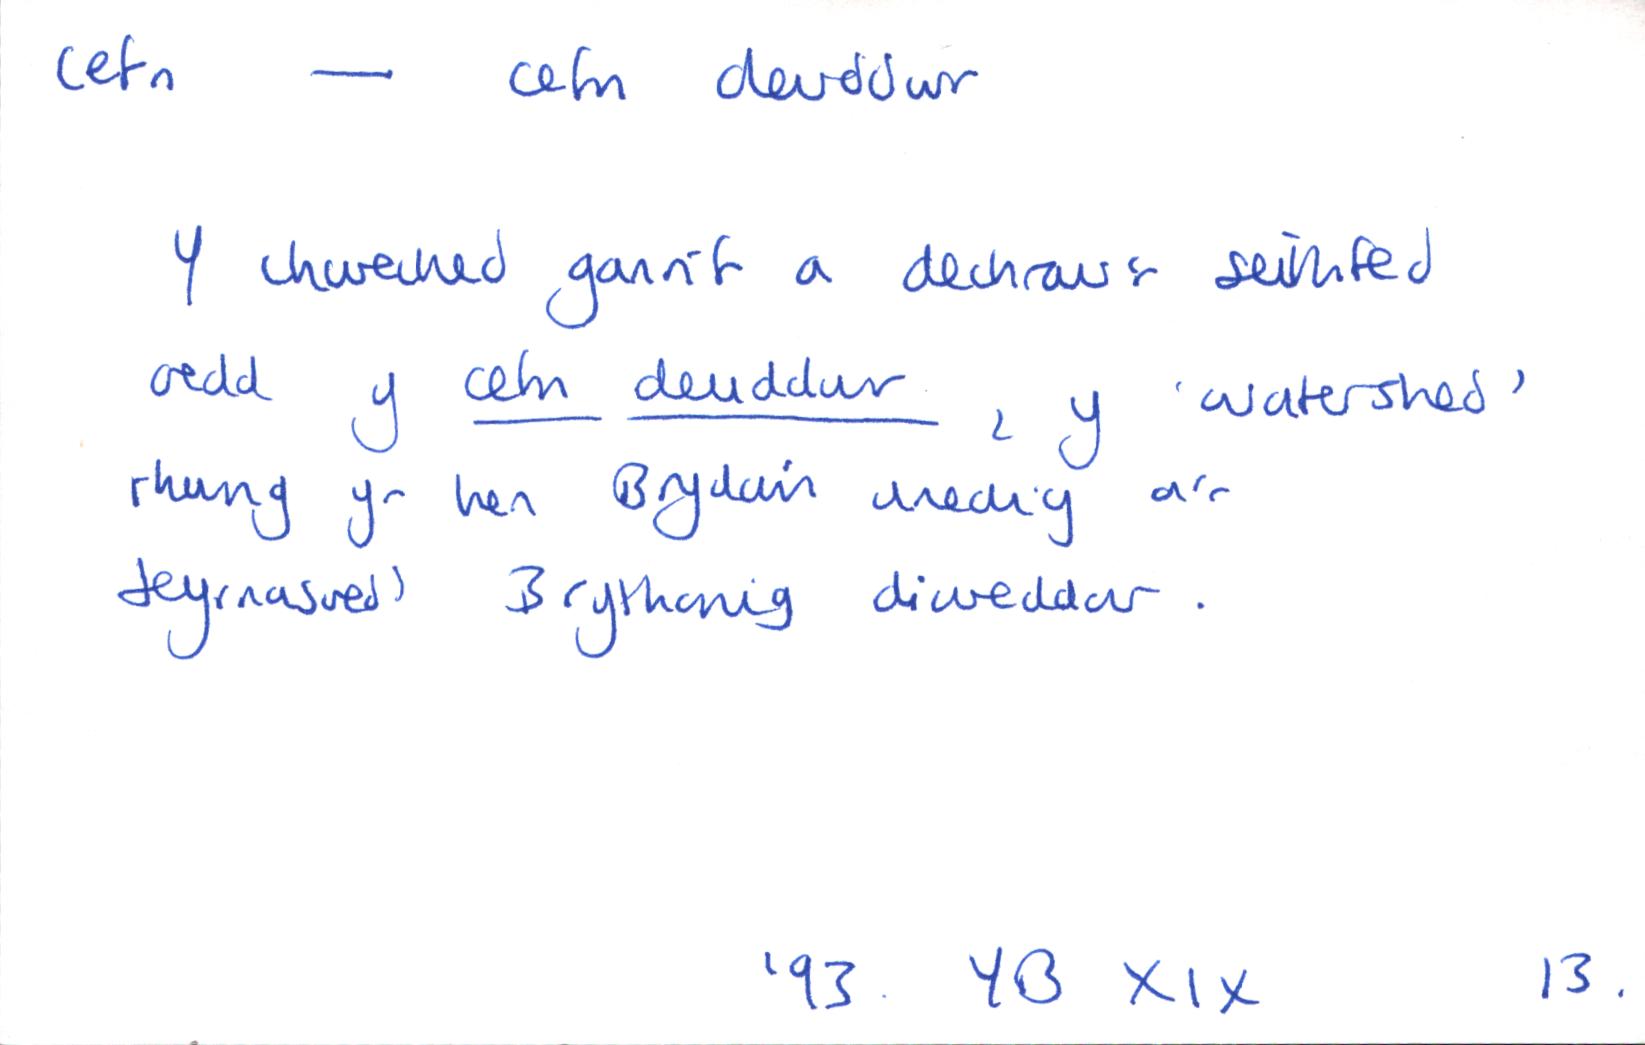 cefn — cefn deuddwr
Y chweched ganrif a dechrau'r seithfed
oedd y cefn deuddwr, y 'watershed'
rhwng yr hen Brydain unedig a'r
teyrnasoedd Brythonig diweddar.
'93. YB XIX 13.